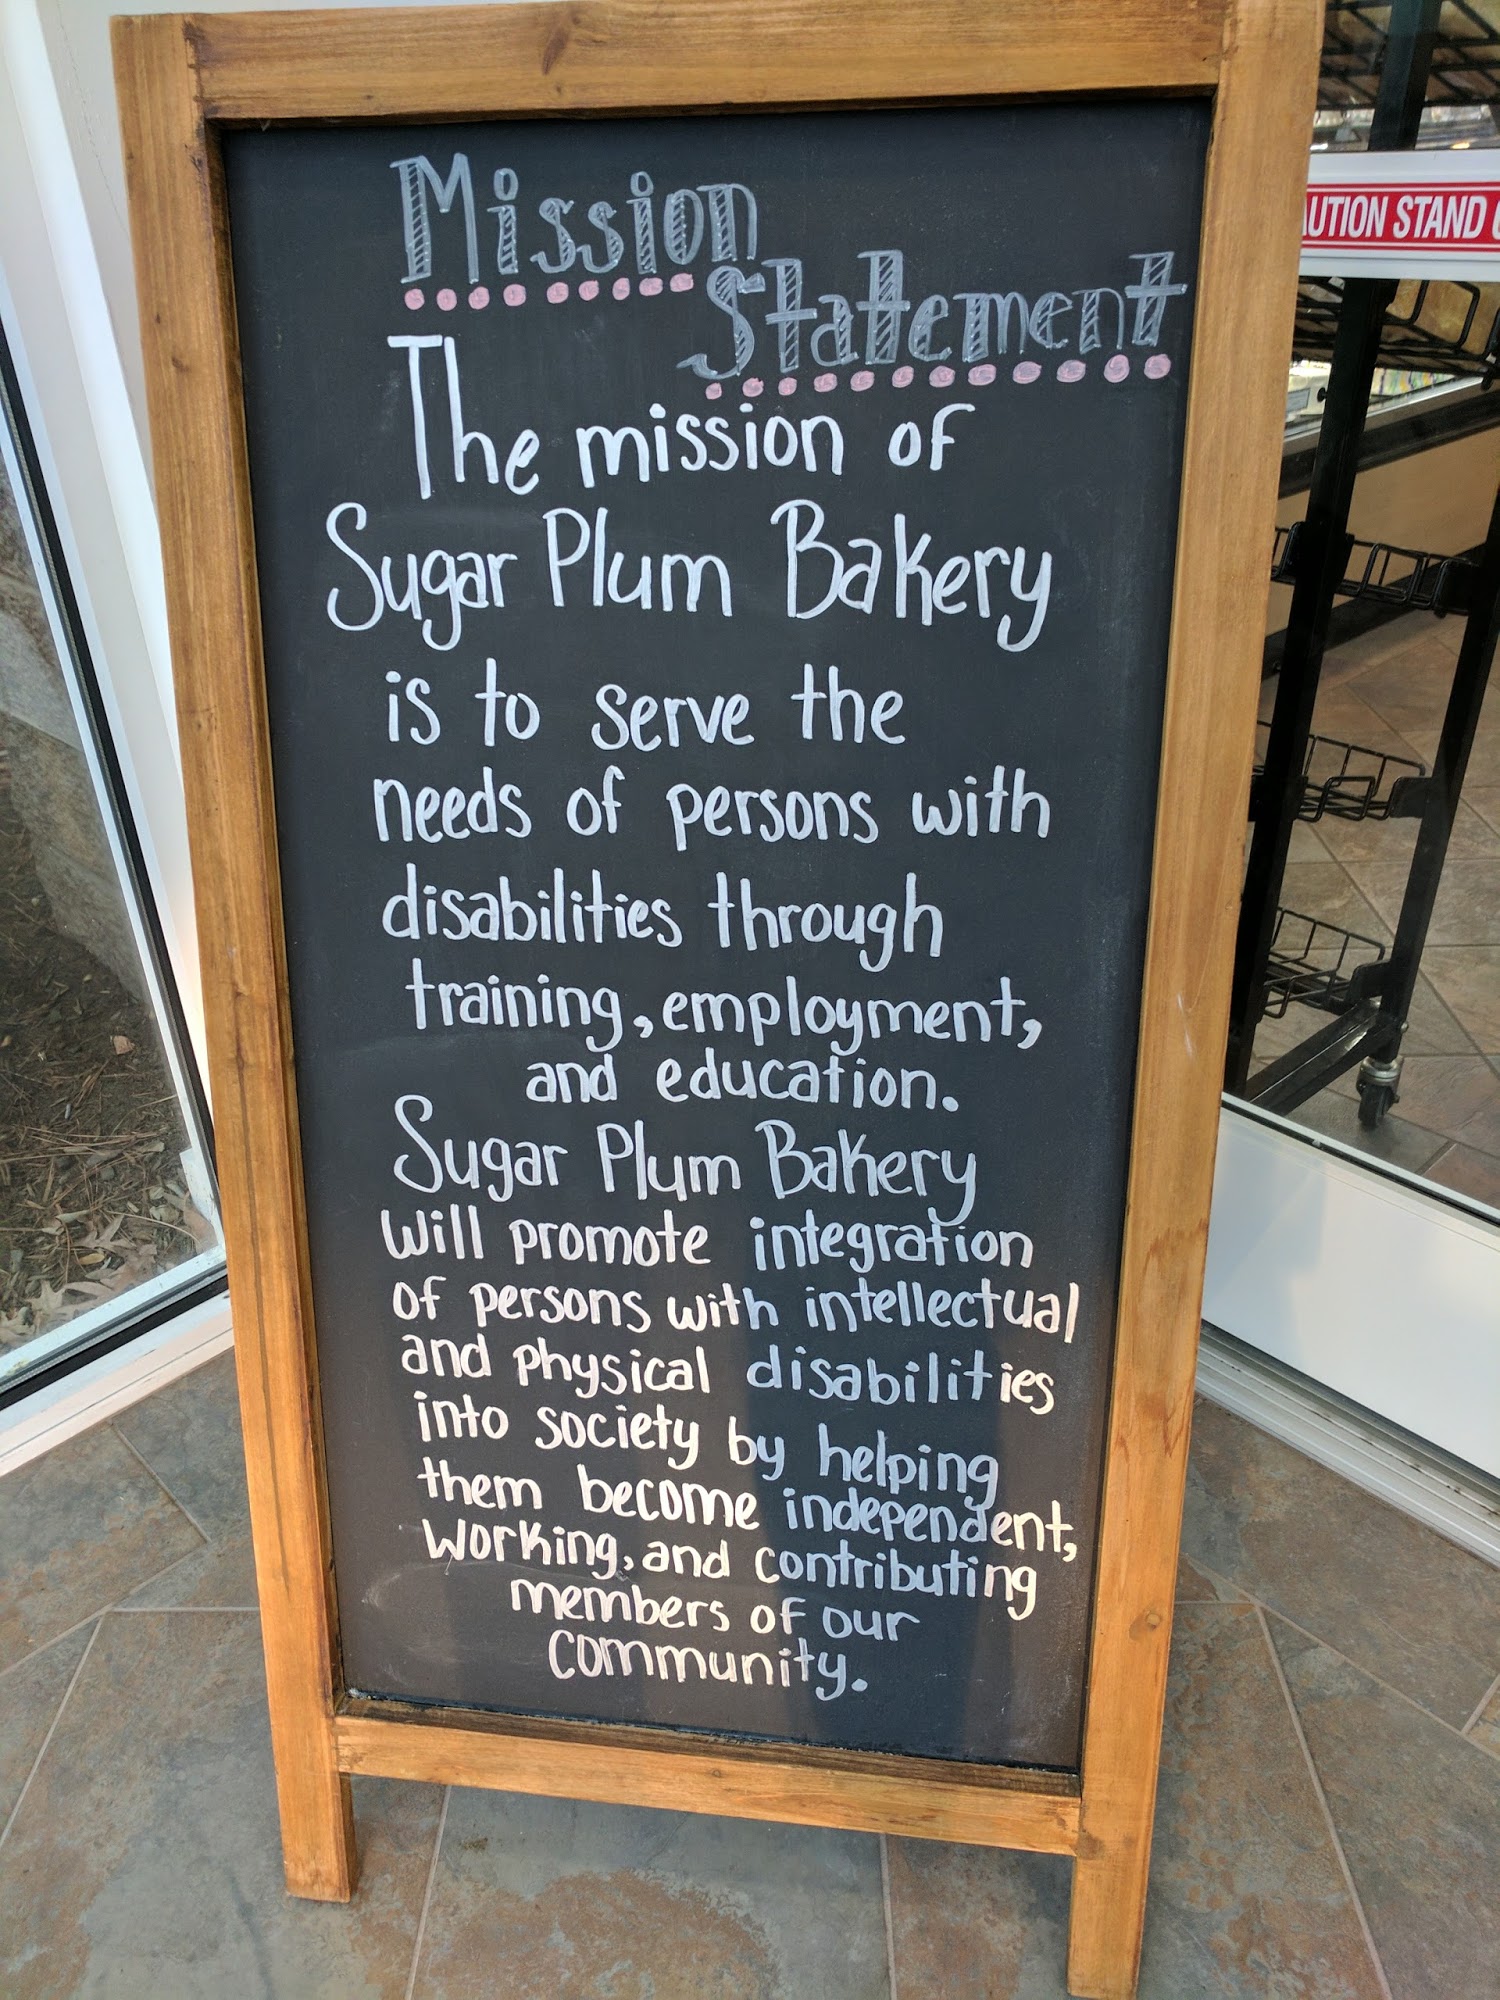 Mission
Statement
The mission of
Sugar Plum Bakery
is to serve the
needs of persons with
disabilities through
training, employment,
and education.
Sugar Plum Bakery
will promote integration
of persons with intellectual
and physical disabilities
into society by helping
them become independent,
working, and contributing
members of our
community.
AUTION STAND